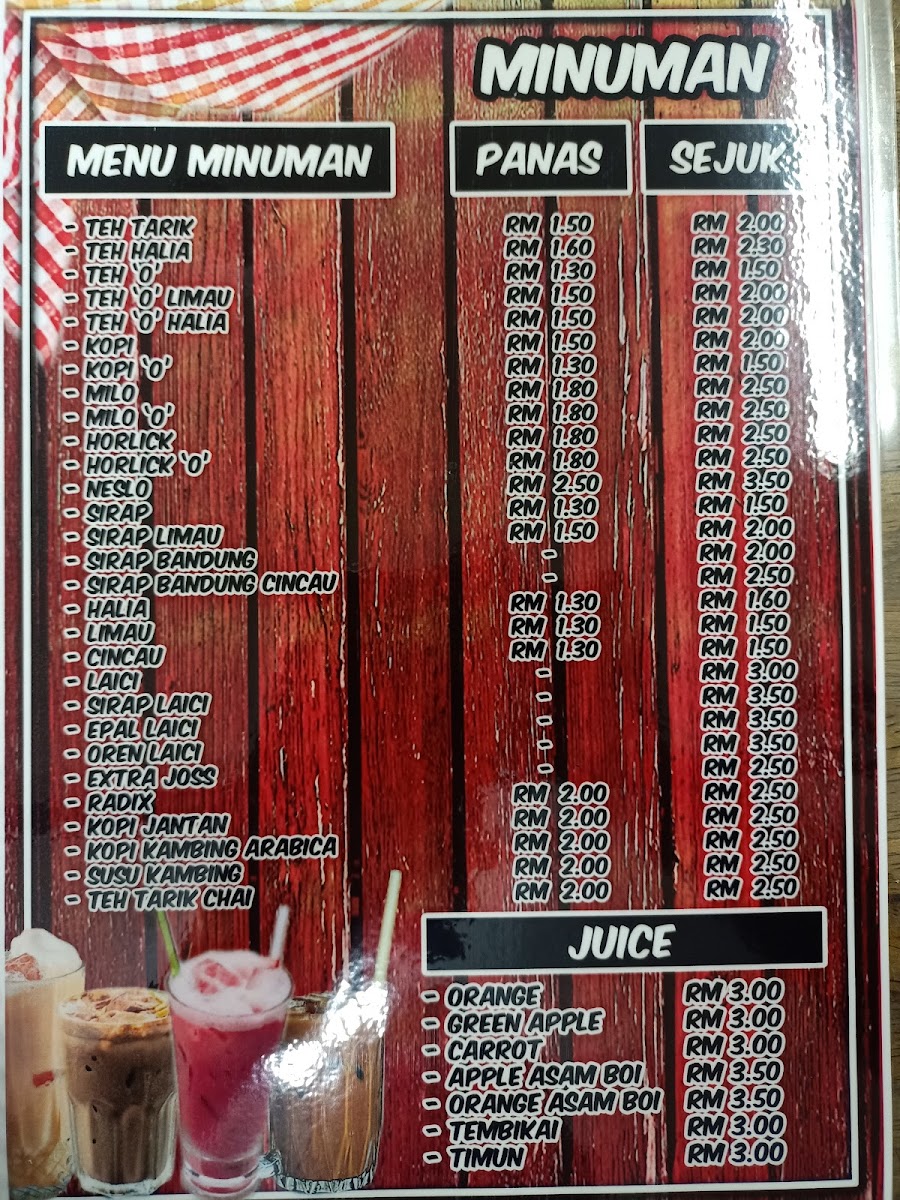 MINUMAN
MENU MINUMAN PANAS SEJUK
- TEH TARIK RM 1.50 RM 2.00
- TEH HALIA RM 1.60 RM 2.30
- TEH 'O' RM 1.30 RM 1.50
- TEH 'O' LIMAU RM 1.50 RM 2.00
- TEH 'O' HALIA RM 1.50 RM 2.00
- KOPI RM 1.50 RM 2.00
- KOPI 'O' RM 1.30 RM 1.50
- MILO RM 1.80 RM 2.50
- MILO 'O' RM 1.80 RM 2.50
- HORLICK RM 1.80 RM 2.50
- HORLICK 'O' RM 1.80 RM 2.50
- NESLO RM 2.50 RM 3.50
- SIRAP RM 1.30 RM 1.50
- SIRAP LIMAU RM 1.50 RM 2.00
- SIRAP BANDUNG - RM 2.00
- SIRAP BANDUNG CINCAU - RM 2.50
- HALIA RM 1.30 RM 1.60
- LIMAU RM 1.30 RM 1.50
- CINCAU RM 1.30 RM 1.50
- LAICI - RM 3.00
- SIRAP LAICI - RM 3.50
- EPAL LAICI - RM 3.50
- OREN LAICI - RM 3.50
- EXTRA JOSS - RM 2.50
- RADIX RM 2.00 RM 2.50
- KOPI JANTAN RM 2.00 RM 2.50
- KOPI KAMBING ARABICA RM 2.00 RM 2.50
- SUSU KAMBING RM 2.00 RM 2.50
- TEH TARIK CHAI RM 2.00 RM 2.50
JUICE
- ORANGE RM 3.00
- GREEN APPLE RM 3.00
- CARROT RM 3.00
- APPLE ASAM BOI RM 3.50
- ORANGE ASAM BOI RM 3.50
- TEMBIKAI RM 3.00
- TIMUN RM 3.00